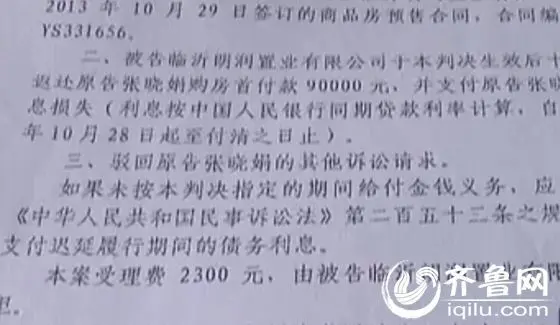 2013 年 10 月 29 日签订的商品房预售合同，合同编
YS331656。
二、被告临沂朗润置业有限公司于本判决生效后十
返还原告张晓娟购房首付款 90000 元，并支付原告张晓
息损失（利息按中国人民银行同期贷款利率计算，自
年 10 月 28 日起至付清之日止）。
三、驳回原告张晓娟的其他诉讼请求。
如果未按本判决指定的期间给付金钱义务，应
《中华人民共和国民事诉讼法》第二百五十三条之规
支付迟延履行期间的债务利息。
本案受理费 2300 元，由被告临沂朗润置业有限
担。
齐鲁网
iqilu.com